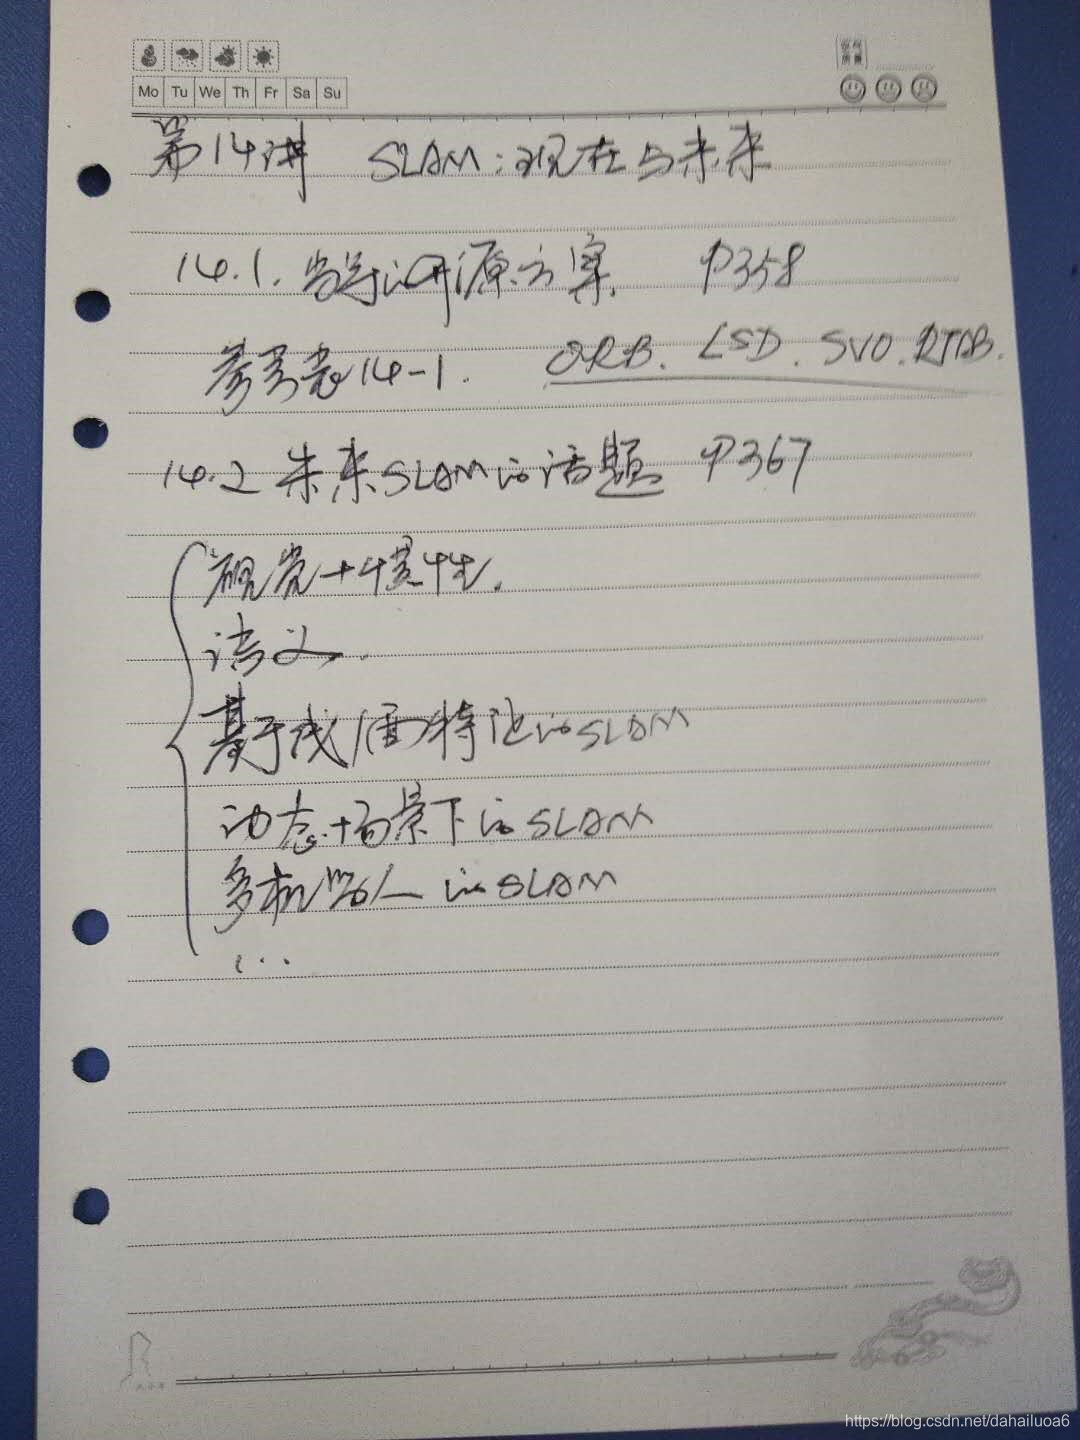 Mo Tu We Th Fr Sa Su
第14讲 SLAM:现在与未来
14.1. 当前的开源方案. P358
参考表14-1. ORB. LSD. SVO. RTAB.
14.2 未来SLAM的话题 P367
视觉+惯性.
语义.
基于线/面特征的SLAM
动态场景下的SLAM
多机器人的SLAM
...
https://blog.csdn.net/dahailuoa6